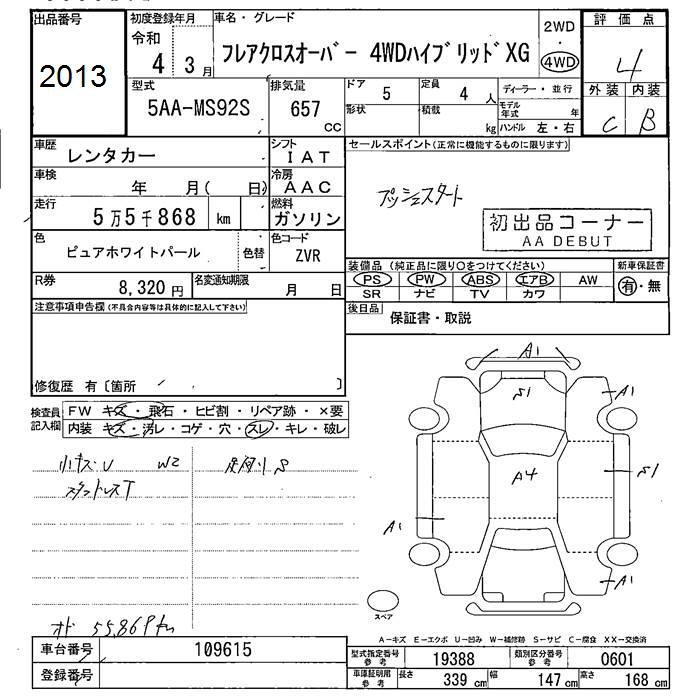 出品番号
2013
初度登録年月
令和
4 3月
車名・グレード
フレアクロスオーバー 4WDハイブリッドXG
2WD
4WD
評価点
4
外装 内装
C B
型式
5AA-MS92S
排気量
657
CC
ドア
5
定員
4 人
形状
積載
kg
ディーラー・並行
モデル年式 年
ハンドル 左・右
車歴
レンタカー
シフト
IAT
車検
年 月( 日)
冷房
AAC
走行
5万5千868 km
燃料
ガソリン
色
ピュアホワイトパール
色替
色コード
ZVR
R券
8,320円
名変通知期限
月 日
セールスポイント(正常に機能するものに限ります)
プッシュスタート
初出品コーナー
AA DEBUT
装備品 (純正品に限り○をつけてください)
新車保証書
PS PW ABS エアB AW
SR ナビ TV カワ
有・無
後日品
保証書・取説
注意事項申告欄(不具合内容等は具体的に記入して下さい)
修復歴 有〔箇所 〕
検査員記入欄
FW キズ・飛石・ヒビ割・リペア跡・×要
内装 キズ・汚レ・コゲ・穴・スレ・キレ・破レ
小キズ・U W2
スタットレスT
足廻リS
オド 55,868km
A1
S1
A1
A4
S1
A1
A1
スペア
A-キズ E-エクボ U-凹み W-補修跡 S-サビ C-腐食 XX-交換済
車台番号
109615
登録番号
型式指定番号
参考
19388
類別区分番号
参考
0601
車庫証明用
参考
長さ
339 cm
幅
147 cm
高さ
168 cm